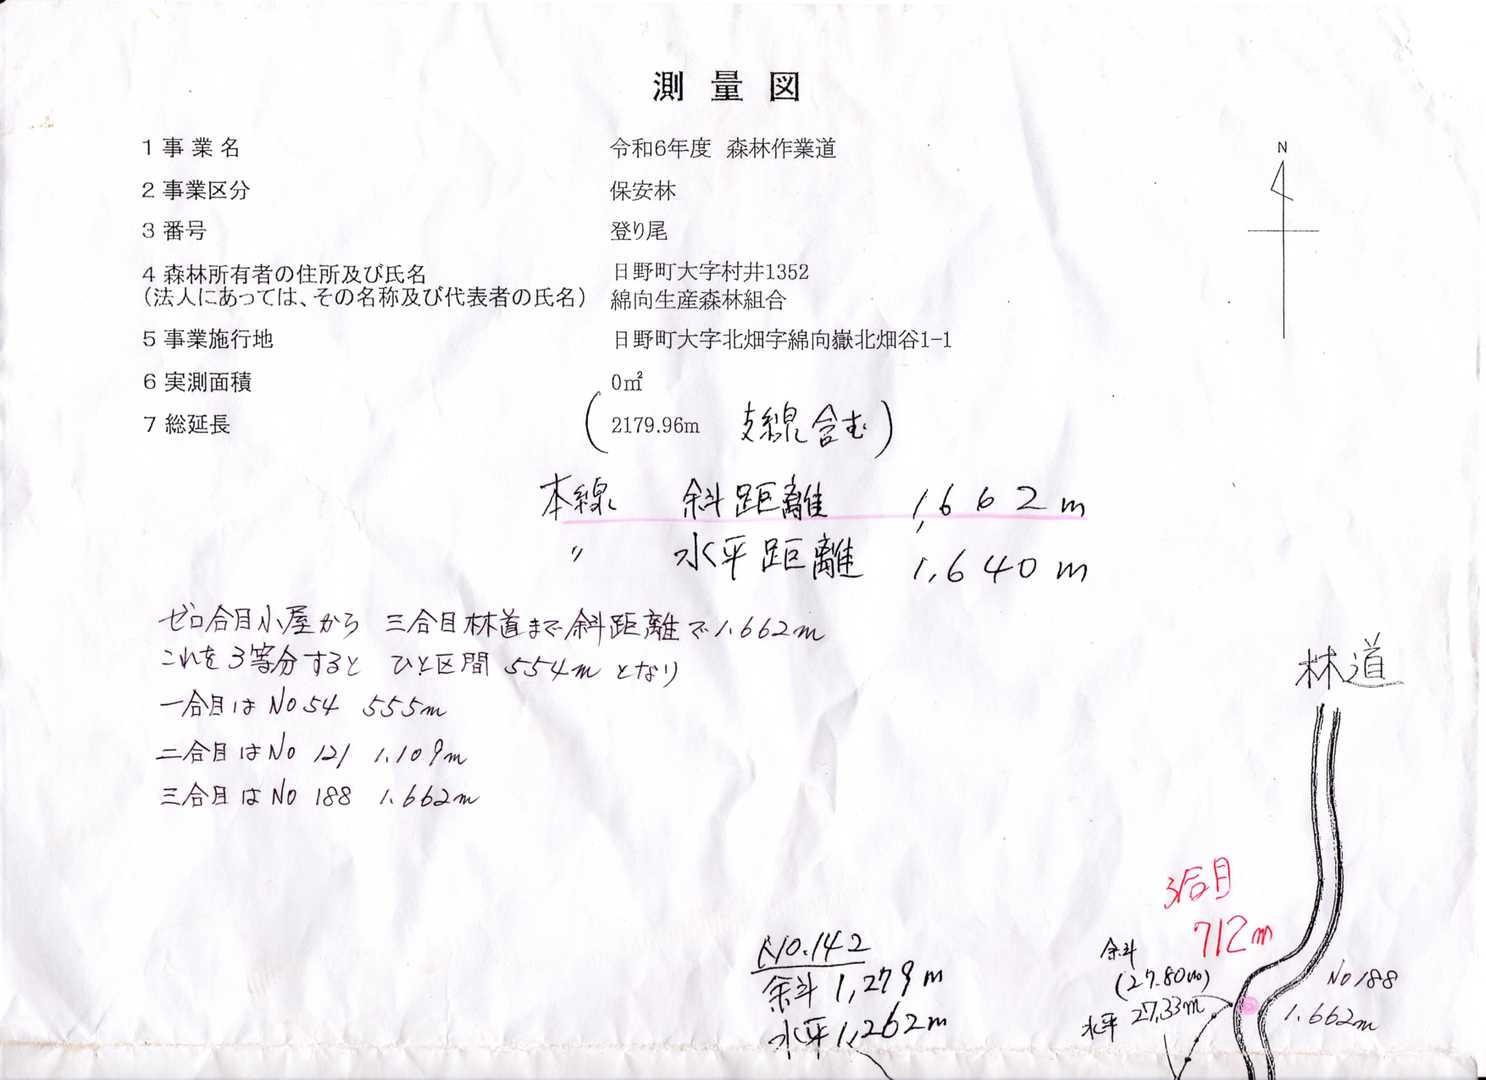 測量図
N
1 事業名 令和6年度 森林作業道
2 事業区分 保安林
3 番号 登り尾
4 森林所有者の住所及び氏名 日野町大字村井1352
(法人にあっては、その名称及び代表者の氏名) 綿向生産森林組合
5 事業施行地 日野町大字北畑字綿向嶽北畑谷1-1
6 実測面積 0㎡
7 総延長 (2179.96m 支線含む)
本線 斜距離 1,662m
〃 水平距離 1,640m
ゼロ合目小屋から 三合目林道まで斜距離で1.662m
これを3等分すると ひと区間 554mとなり
一合目はNo54 555m
二合目はNo 121 1.109m
三合目はNo 188 1.662m
林道
3合目
712m
No.142
斜 1,279m
水平1,262m
斜
(27.80m)
水平 27,33m
No188
1.662m